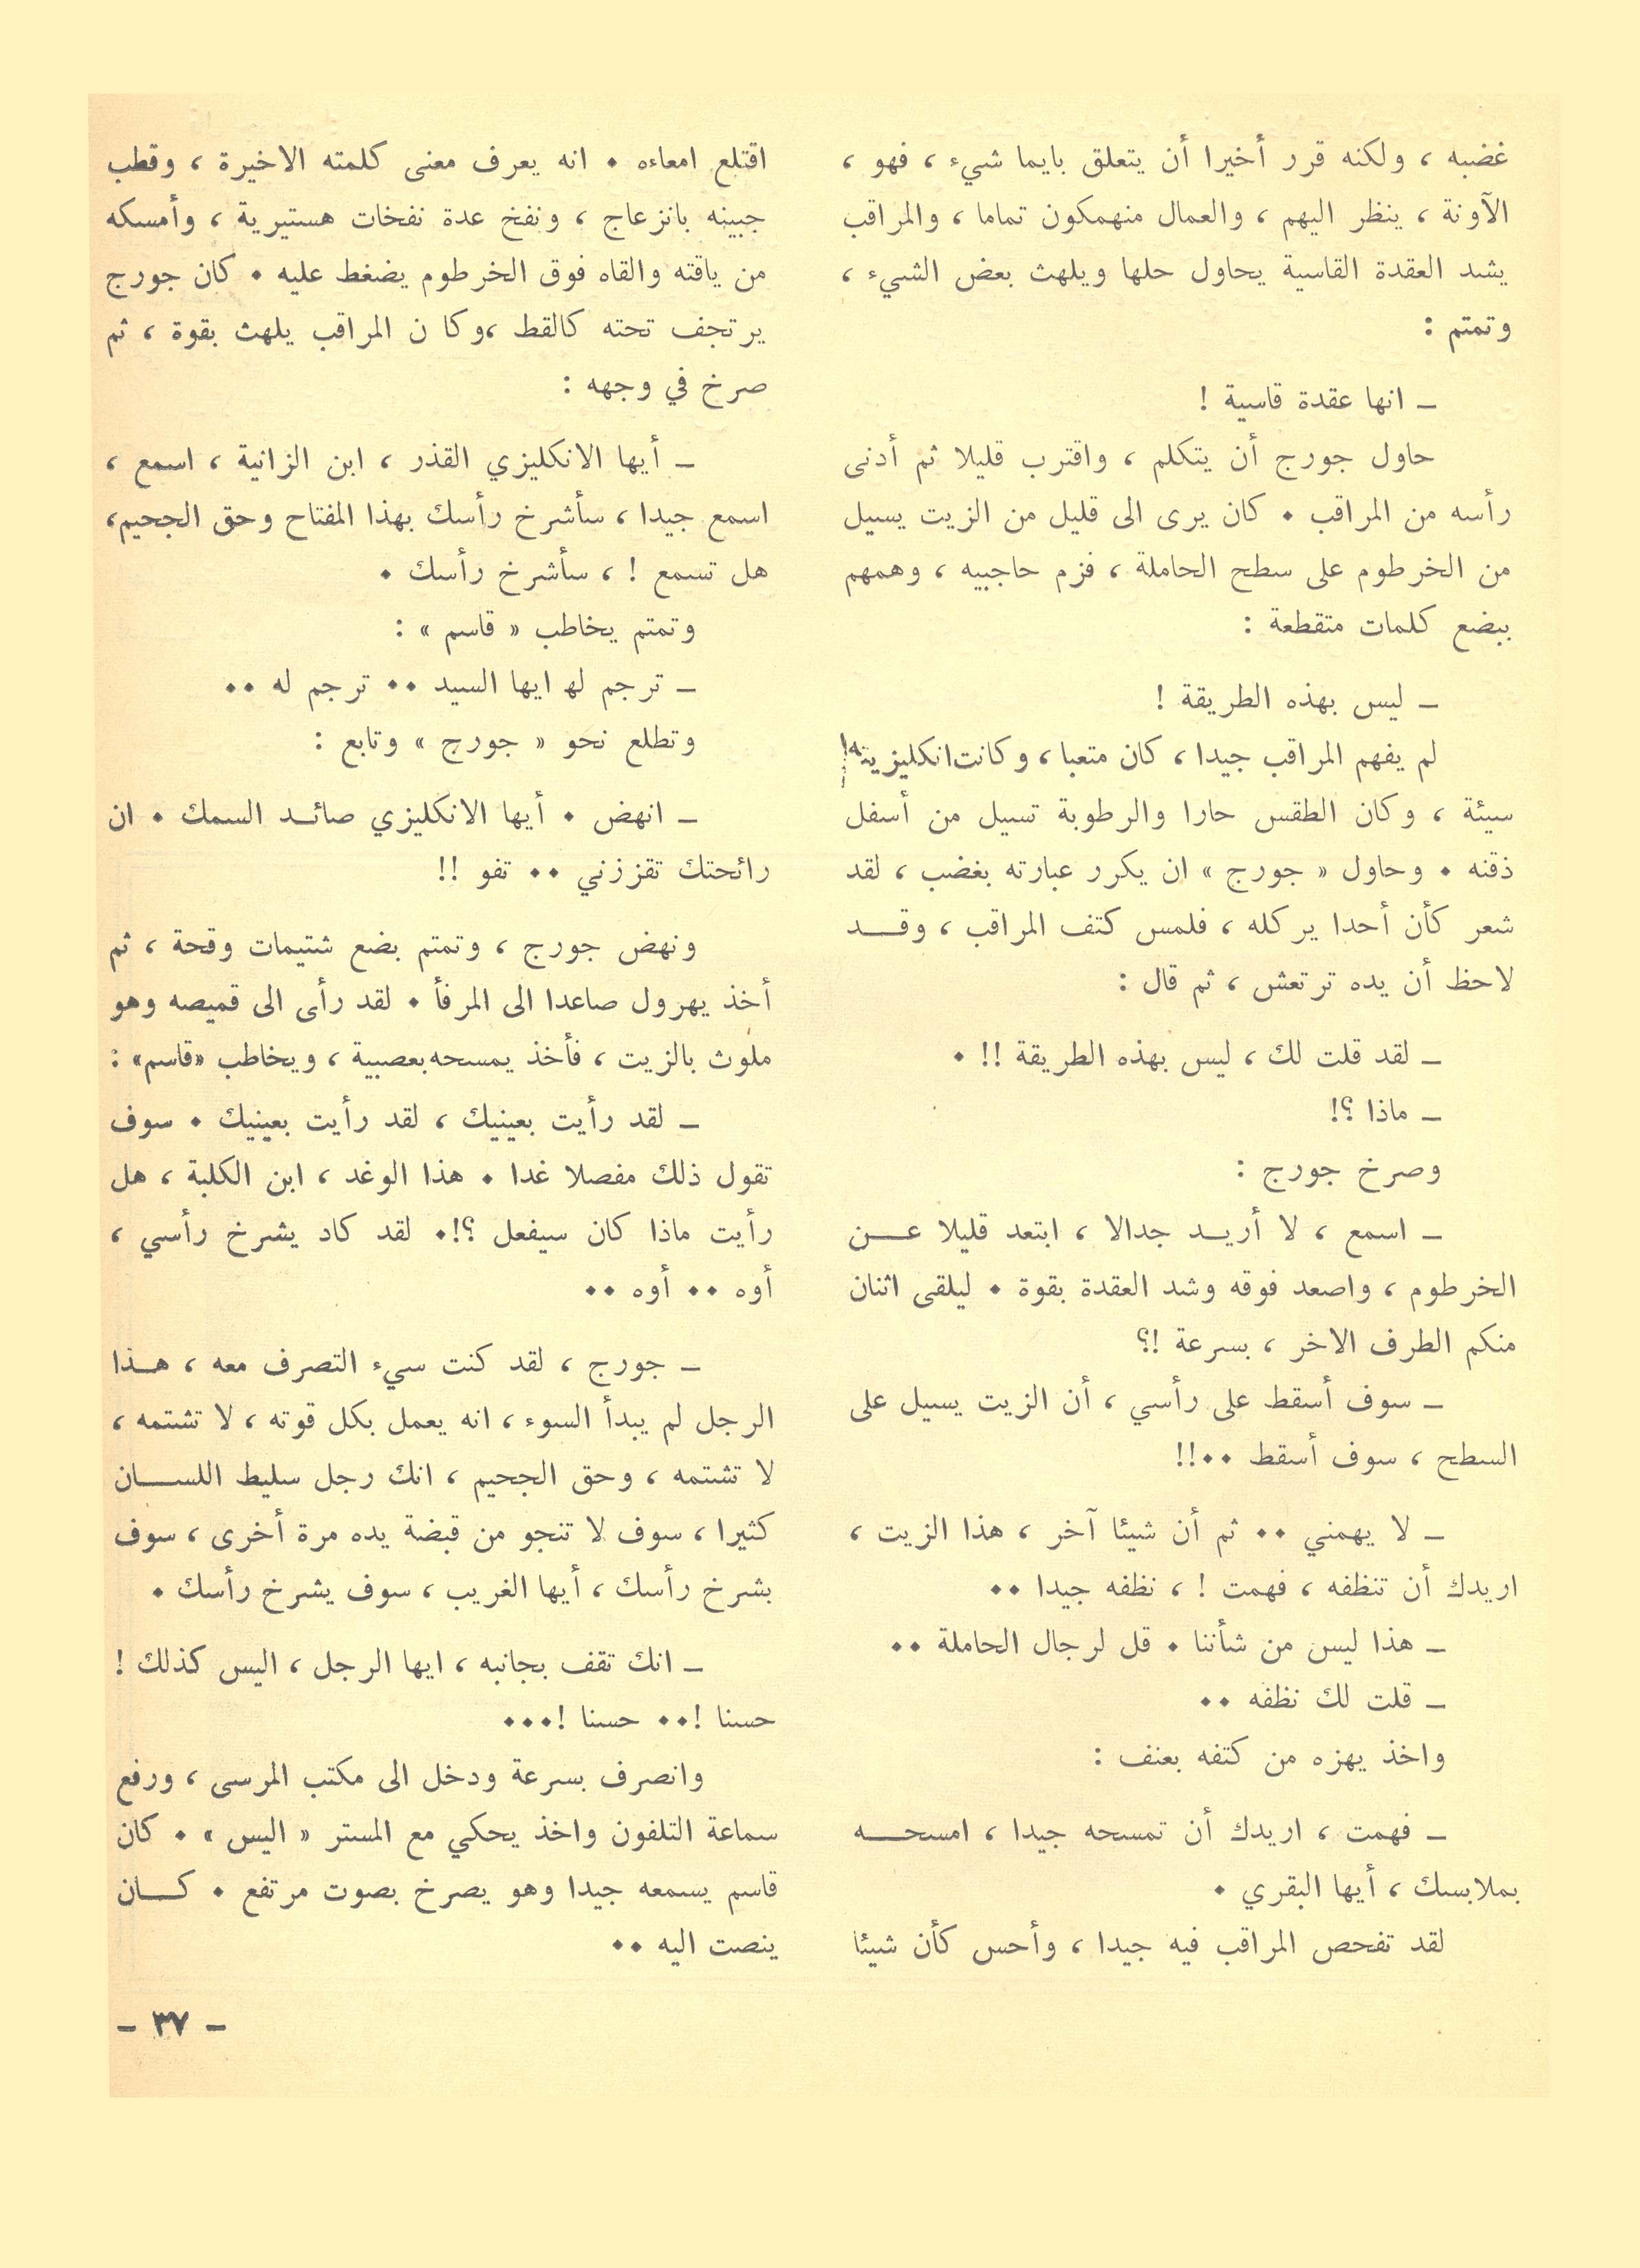 غضبه ، ولكنه قرر أخيرا أن يتعلق بايما شيء ، فهو ،
الآونة ، ينظر اليهم ، والعمال منهمكون تماما ، والمراقب
يشد العقدة القاسية يحاول حلها ويلهث بعض الشيء ،
وتمتم :
ــ انها عقدة قاسية !
حاول جورج أن يتكلم ، واقترب قليلا ثم أدنى
رأسه من المراقب . كان يرى الى قليل من الزيت يسيل
من الخرطوم على سطح الحاملة ، فزم حاجبيه ، وهمهم
ببضع كلمات متقطعة :
ــ ليس بهذه الطريقة !
لم يفهم المراقب جيدا ، كان متعبا ، وكانت انكليزيته
سيئة ، وكان الطقس حارا والرطوبة تسيل من أسفل
ذقنه . وحاول « جورج » ان يكرر عبارته بغضب ، لقد
شعر كأن أحدا يركله ، فلمس كتف المراقب ، وقــد
لاحظ أن يده ترتعش ، ثم قال :
ــ لقد قلت لك ، ليس بهذه الطريقة !! .
ــ ماذا ؟!
وصرخ جورج :
ــ اسمع ، لا أريــد جدالا ، ابتعد قليلا عــن
الخرطوم ، واصعد فوقه وشد العقدة بقوة . ليلقى اثنان
منكم الطرف الاخر ، بسرعة !؟
ــ سوف أسقط على رأسي ، أن الزيت يسيل على
السطح ، سوف أسقط ..!!
ــ لا يهمني .. ثم أن شيئا آخر ، هذا الزيت ،
اريدك أن تنظفه ، فهمت ! ، نظفه جيدا ..
ــ هذا ليس من شأننا . قل لرجال الحاملة ..
ــ قلت لك نظفه ..
واخذ يهزه من كتفه بعنف :
ــ فهمت ، اريدك أن تمسحه جيدا ، امسحــه
بملابسك ، أيها البقري .
لقد تفحص المراقب فيه جيدا ، وأحس كأن شيئا
اقتلع امعاءه . انه يعرف معنى كلمته الاخيرة ، وقطب
جبينه بانزعاج ، ونفخ عدة نفخات هستيرية ، وأمسكه
من ياقته والقاه فوق الخرطوم يضغط عليه . كان جورج
يرتجف تحته كالقط ،وكا ن المراقب يلهث بقوة ، ثم
صرخ في وجهه :
ــ أيها الانكليزي القذر ، ابن الزانية ، اسمع ،
اسمع جيدا ، سأشرخ رأسك بهذا المفتاح وحق الجحيم،
هل تسمع ! ، سأشرخ رأسك .
وتمتم يخاطب « قاسم » :
ــ ترجم له ايها السيد .. ترجم له ..
وتطلع نحو « جورج » وتابع :
ــ انهض . أيها الانكليزي صائــد السمك . ان
رائحتك تقززني .. تفو !!
ونهض جورج ، وتمتم بضع شتيمات وقحة ، ثم
أخذ يهرول صاعدا الى المرفأ . لقد رأى الى قميصه وهو
ملوث بالزيت ، فأخذ يمسحه بعصبية ، ويخاطب «قاسم» :
ــ لقد رأيت بعينيك ، لقد رأيت بعينيك . سوف
تقول ذلك مفصلا غدا . هذا الوغد ، ابن الكلبة ، هل
رأيت ماذا كان سيفعل ؟!. لقد كاد يشرخ رأسي ،
أوه .. أوه ..
ــ جورج ، لقد كنت سيء التصرف معه ، هــذا
الرجل لم يبدأ السوء ، انه يعمل بكل قوته ، لا تشتمه ،
لا تشتمه ، وحق الجحيم ، انك رجل سليط اللســان
كثيرا ، سوف لا تنجو من قبضة يده مرة أخرى ، سوف
بشرخ رأسك ، أيها الغريب ، سوف يشرخ رأسك .
ــ انك تقف بجانبه ، ايها الرجل ، اليس كذلك !
حسنا !.. حسنا !...
وانصرف بسرعة ودخل الى مكتب المرسى ، ورفع
سماعة التلفون واخذ يحكي مع المستر « اليس » . كان
قاسم يسمعه جيدا وهو يصرخ بصوت مرتفع . كــان
ينصت اليه ..
ــ ٣٧ ــ